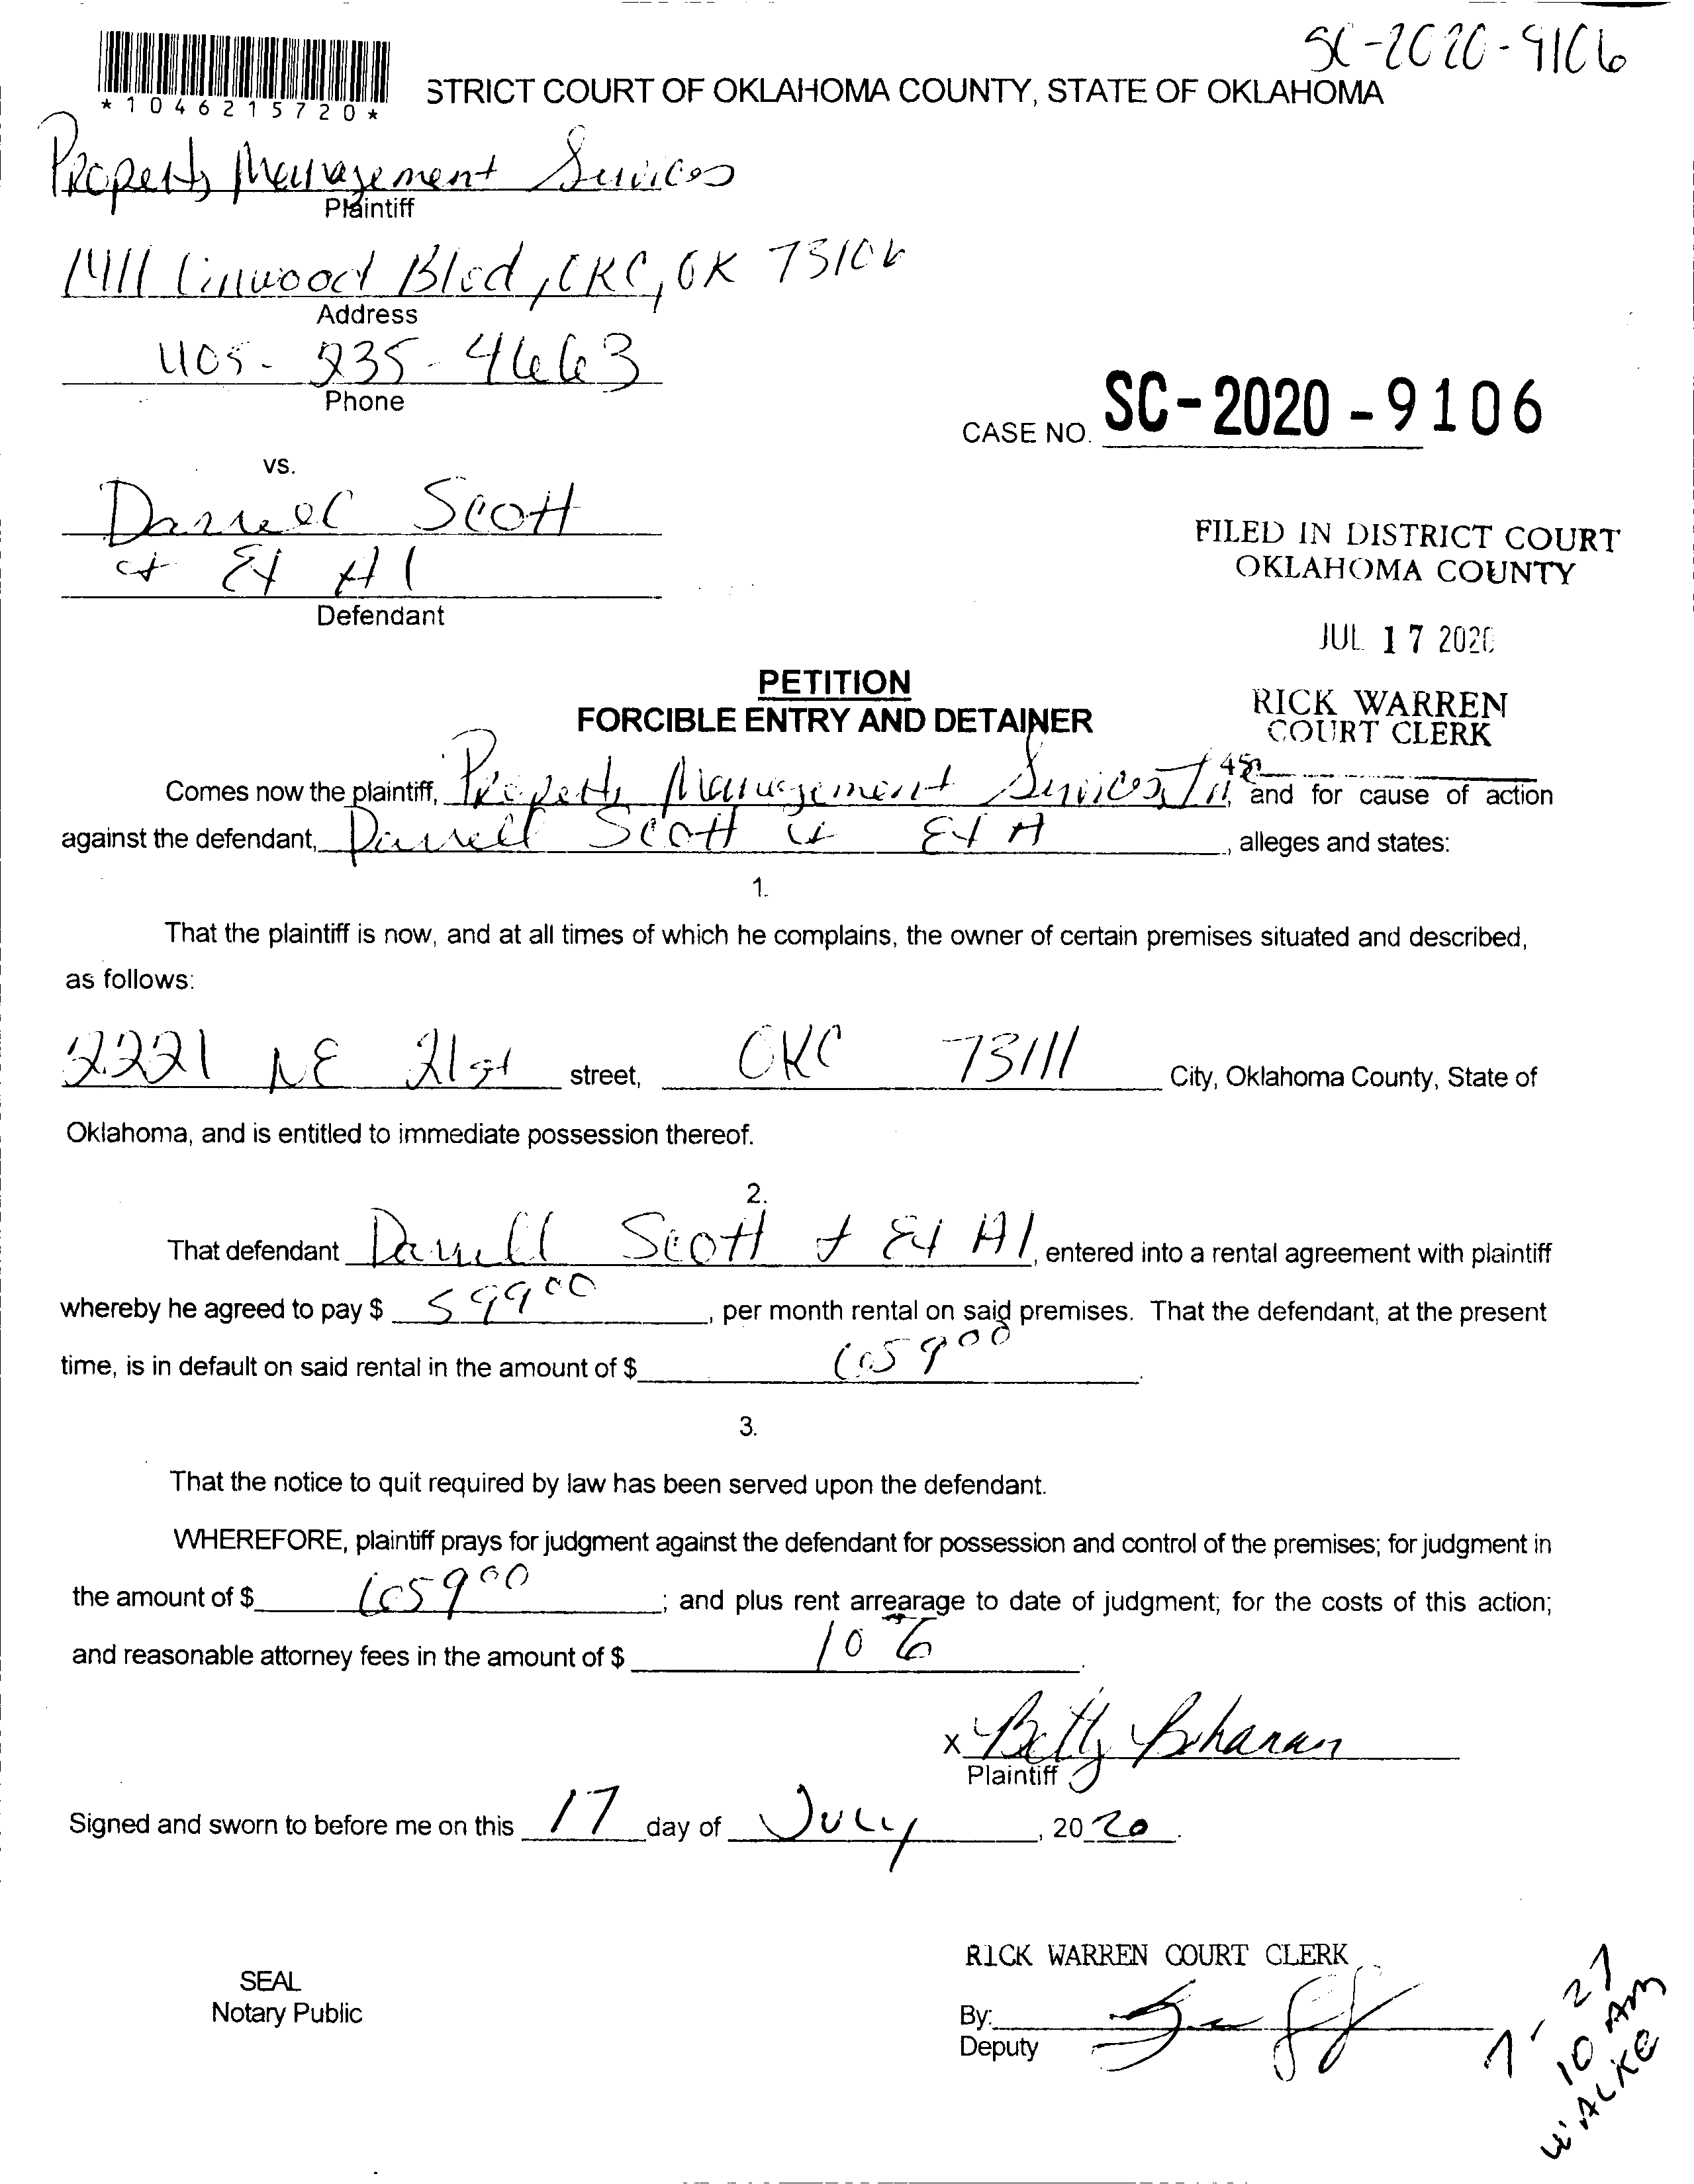 SC-2020-9106
*1046215720*
STRICT COURT OF OKLAHOMA COUNTY, STATE OF OKLAHOMA
Property Management Services
Plaintiff
1411 Linwood Blvd, OKC, OK 73106
Address
405-235-4663
Phone
CASE NO. SC-2020-9106
vs.
Darrell Scott
+ Et Al
Defendant
FILED IN DISTRICT COURT
OKLAHOMA COUNTY
JUL 17 2020
RICK WARREN
COURT CLERK
45
PETITION
FORCIBLE ENTRY AND DETAINER
Comes now the plaintiff, Property Management Services, Inc, and for cause of action
against the defendant, Darrell Scott + Et A, alleges and states:
1.
That the plaintiff is now, and at all times of which he complains, the owner of certain premises situated and described,
as follows:
2221 NE 21st street, OKC 73111 City, Oklahoma County, State of
Oklahoma, and is entitled to immediate possession thereof.
2.
That defendant Darrell Scott + Et Al, entered into a rental agreement with plaintiff
whereby he agreed to pay $ 599 00, per month rental on said premises. That the defendant, at the present
time, is in default on said rental in the amount of $ 00.
3.
That the notice to quit required by law has been served upon the defendant.
WHEREFORE, plaintiff prays for judgment against the defendant for possession and control of the premises; for judgment in
the amount of $ 00; and plus rent arrearage to date of judgment; for the costs of this action;
and reasonable attorney fees in the amount of $
x Betty
Plaintiff
Signed and sworn to before me on this 17 day of July, 2020.
RICK WARREN COURT CLERK
SEAL
Notary Public
By:
Deputy
7-27
10 AM
WALKE